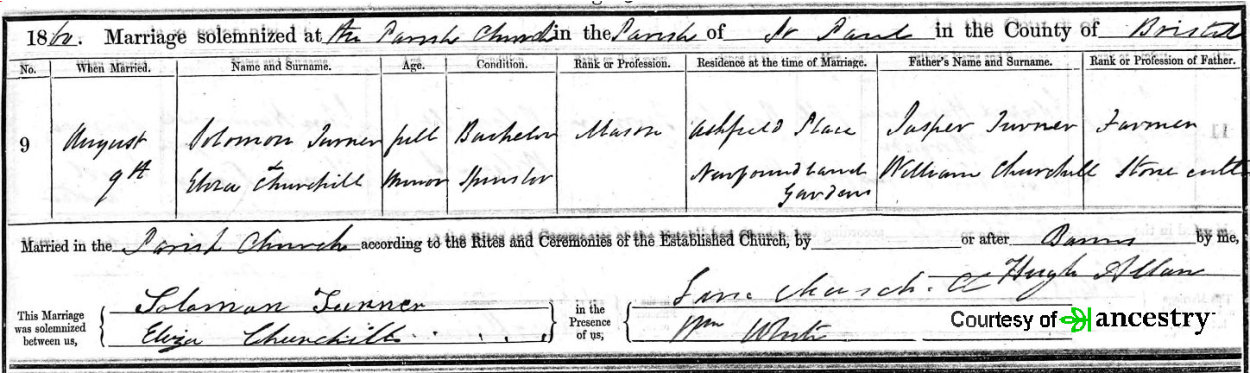 1860. Marriage solemnized at the Parish Church in the Parish of St Paul in the County of Bristol
No. When Married. Name and Surname. Age. Condition. Rank or Profession. Residence at the time of Marriage. Father's Name and Surname. Rank or Profession of Father.
9 August Solomon Turner full Bachelor Mason Ashfield Place Jasper Turner Farmer
9th & Eliza Churchill Minor Spinster Newfoundland William Churchill Stone cutter
Gardens
Married in the Parish Church according to the Rites and Ceremonies of the Established Church, by or after Banns by me,
Hugh Allan
This Marriage was solemnized between us, Solomon Turner in the Presence of us; Churchill
Eliza Churchill Wm White
Courtesy of ancestry